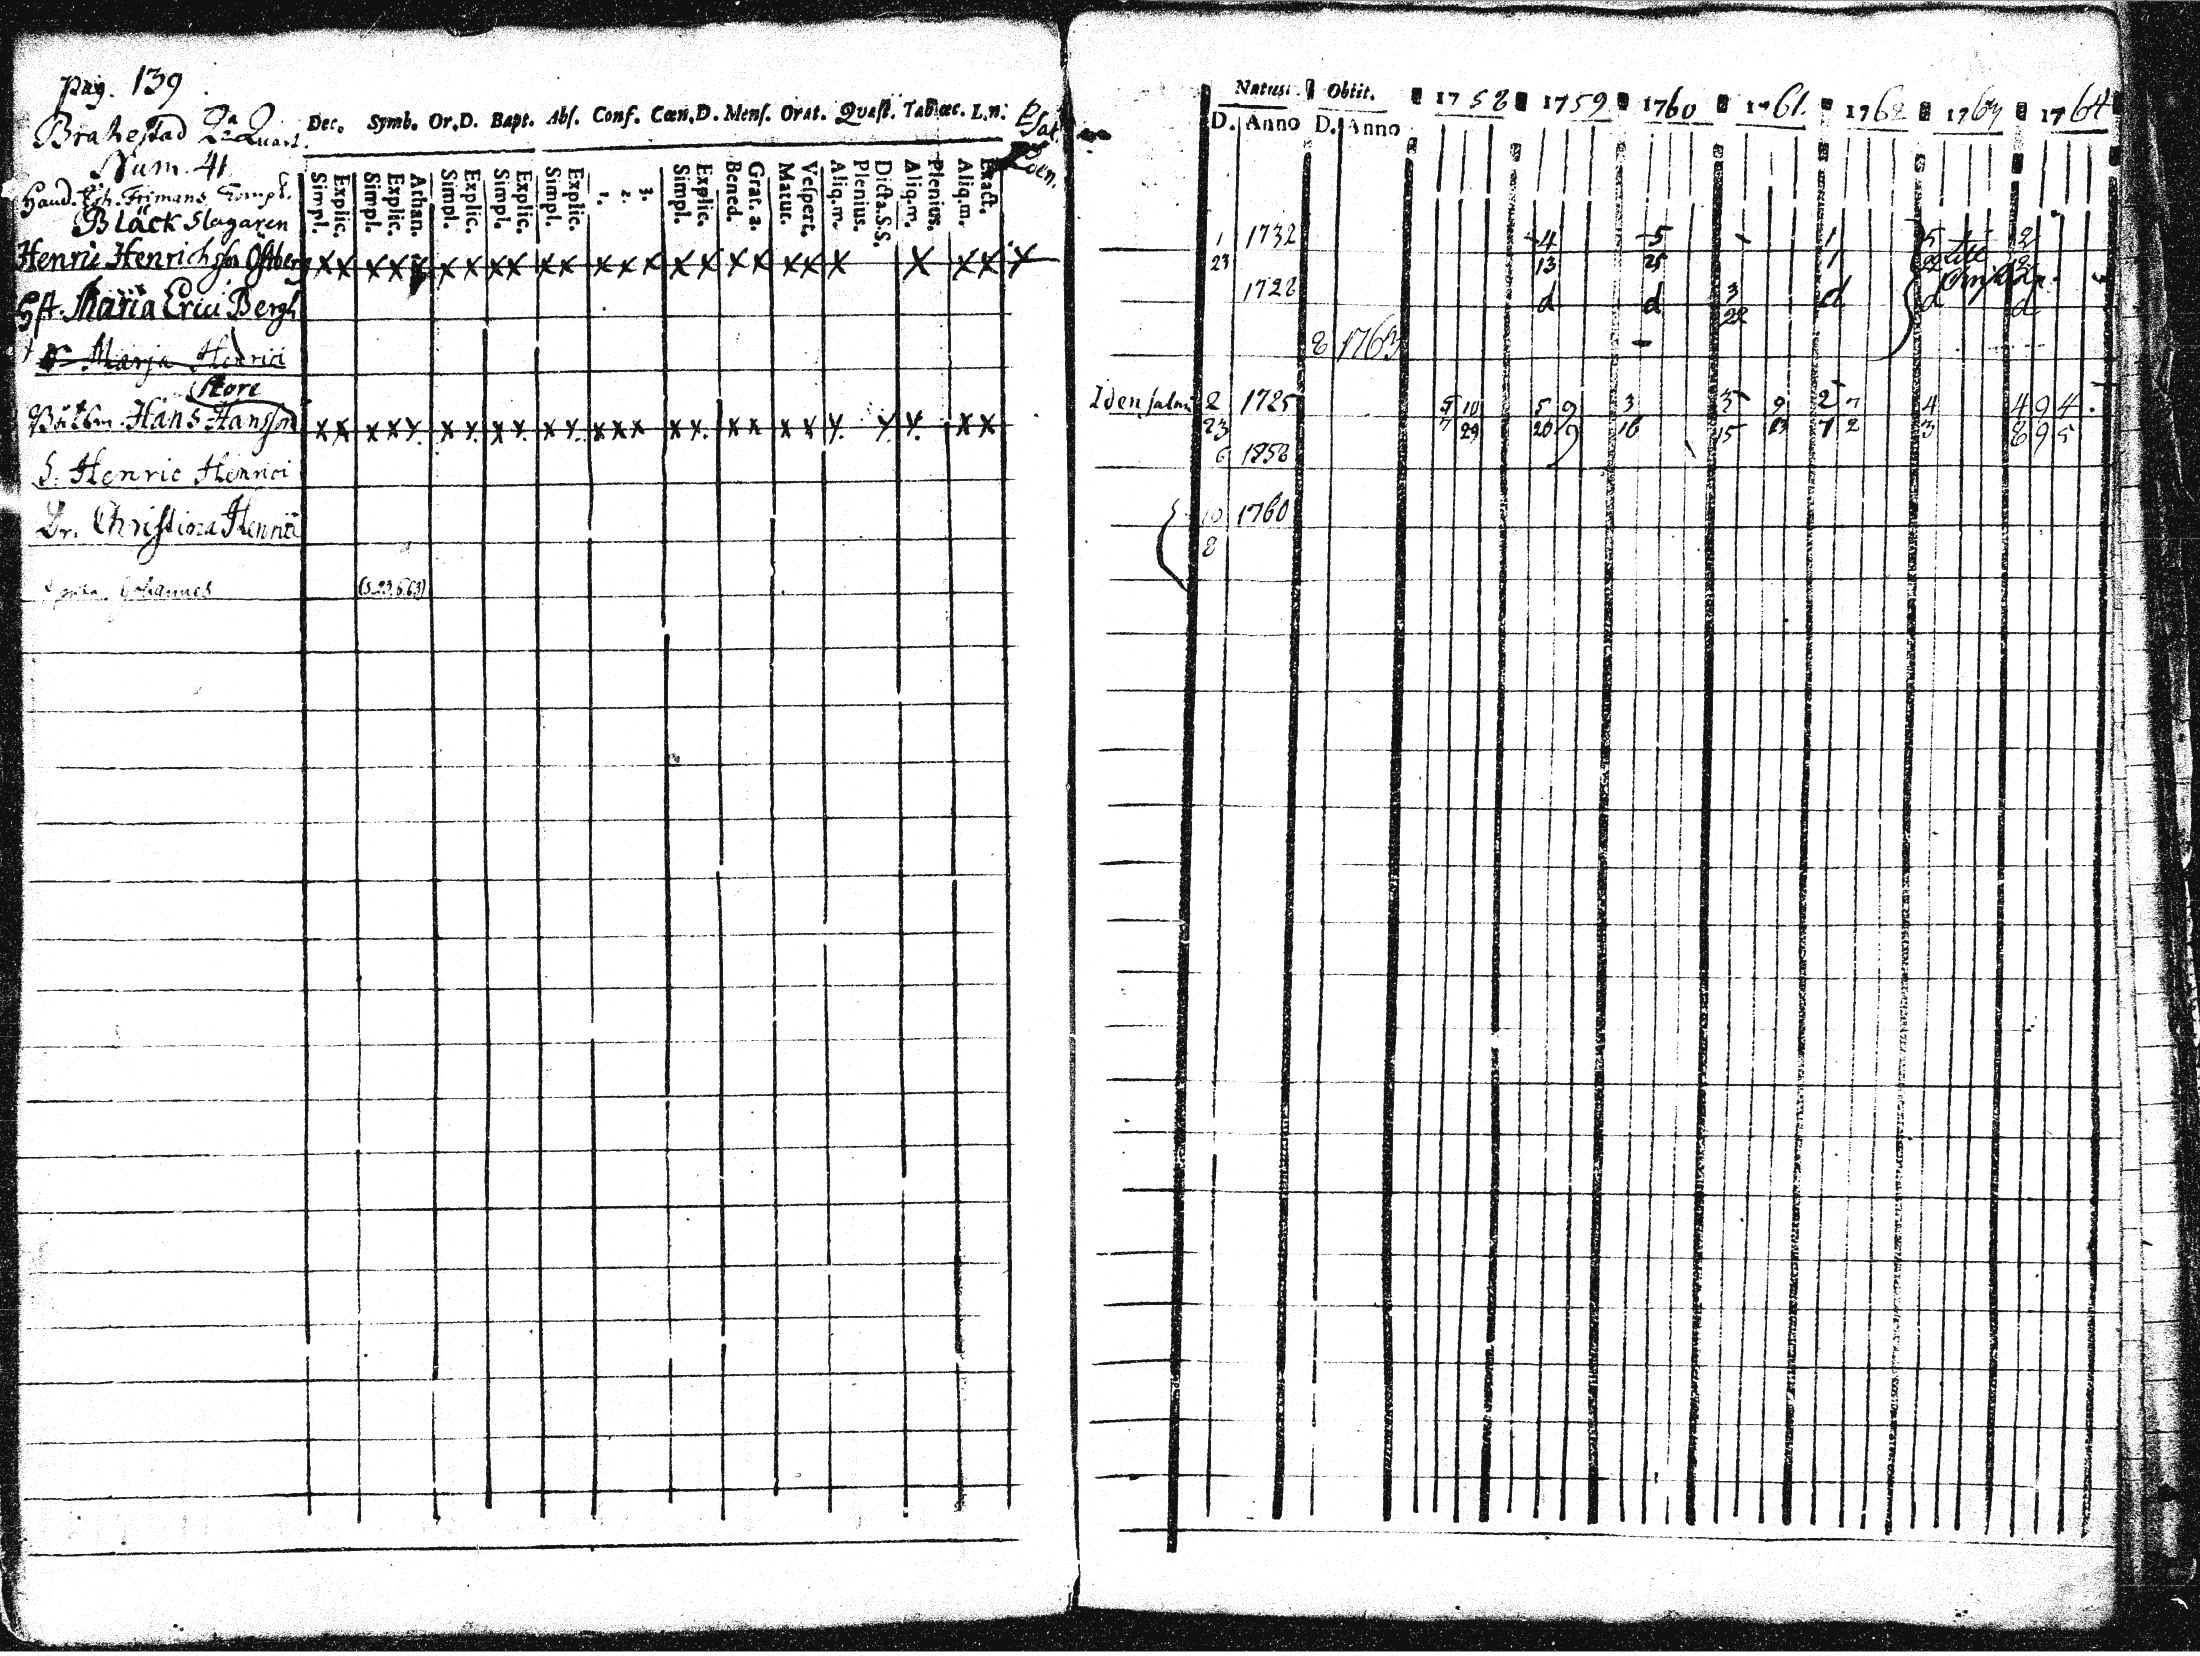 pag. 139
Brahestad 2a Quart.
Num. 41
Bläck Slagaren
Dec. Symb. Or.D. Bapt. Abs. Conf. Cœn.D. Mens. Orat. Quæst. Tab.œc. L.n.
Simpl. Explic. Simpl. Explic. Athan. Simpl. Explic. Simpl. Explic. Simpl. Explic. 1. 2. 3. Simpl. Explic. Bened. Grat. a. Matut. Vespert. Aliq.m. Plenius. Dicta.S.S. Aliq.m. Plenius. Aliq.m. Exact.
Henric Henrichsson Östberg x x x x x x x x x x x x x x x x x x x x x x x x x
H. Maria Erici Bergh
Marja Henrici
Store
Båtsm. Hans Hansson x x x x x x x x x x x x x x x x x x x x x x x x x
S. Henric Henrici
Dr. Christina Henrici
Johannes
Natus. Obiit. 1758 1759 1760 1761. 1762 1763 1764
D. Anno D. Anno
1 1732 4 5 1 5 2
23 13 25 1 22
1728 d d 3 d d d
22
8 1763
Idensalmi 2 1725 5 10 5 9 3 3 9 2 7 4 4 9 4
23 7 29 20 9 16 15 23 7 2 3 8 9 5
6 1758
10 1760
8